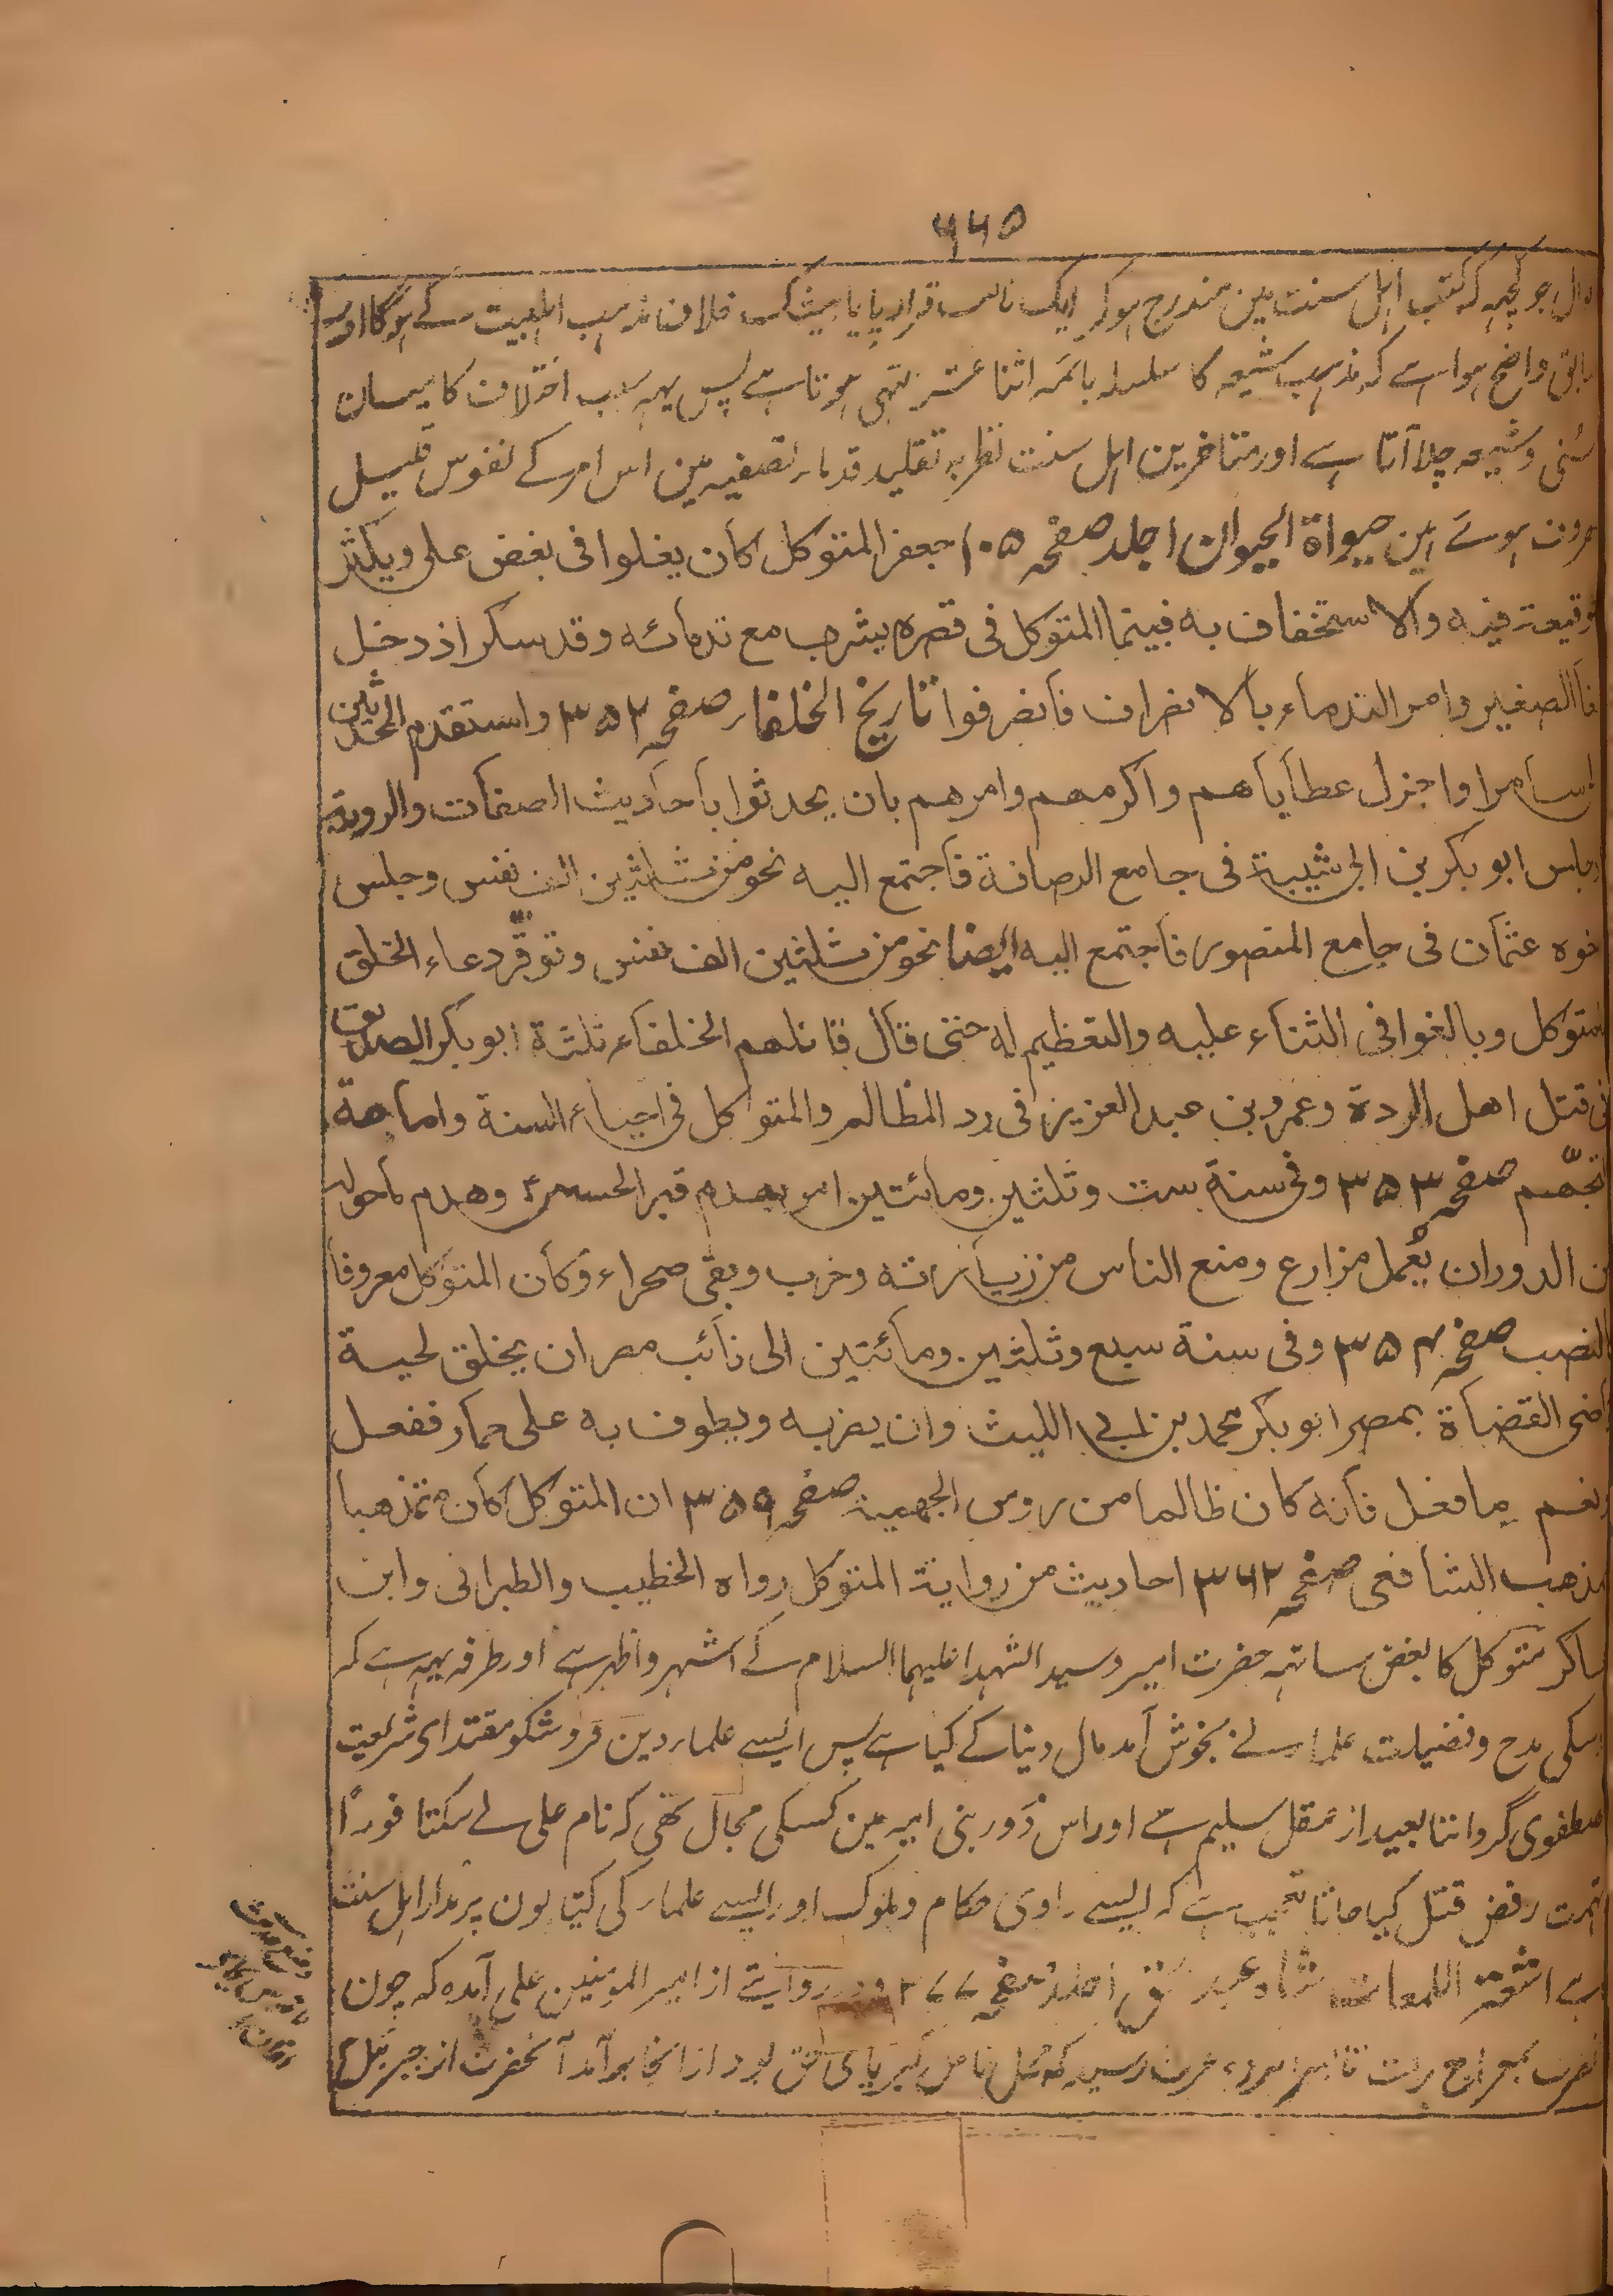 ۶۶۵
جو کچہہ کہ کتب اہل سنت مین مندرج ہوکر ایک ناسب قرار پایا بیشک خلاف مذہب اہلبیت کے ہوگا اور
واضح ہوا ہے کہ مذہب شیعہ کا سلسلہ بائمہ اثنا عشر منتہی ہوتا ہے پس یہہ سبب اختلاف کا میان
سُنی وشیعہ چلا آتا ہے اور متاخرین اہل سنت نظر بہ تقلید قدمار تصفیہ مین اس امر کے نفوس قلیل
ہوئے ہین حیواة الحیوان ا جلد صفحہ ۱۰۵ جعفر المتوکل کان یغلوا فی بغض علی ویکثر
فیه والاستخفاف به فبینما المتوکل فی قصره یشرب مع ندمائه وقد سکر اذ دخل
الصغیر وامر الندماء بالانصراف فانصرفوا تاریخ الخلفار صفحہ ۳۵۲ واستقدم المحدثین
سامرا واجزل عطایاهم واکرمهم وامرهم بان یحدثوا باحادیث الصفات والرویة
ابو بکر بن ابی شیبة فی جامع الرصافة فاجتمع الیه نحو من ثلثین الف نفس وجلس
عثمان فی جامع المنصور فاجتمع الیه ایضا نحو من ثلثین الف نفس وتوفّر دعاء الخلق
وبالغوا فی الثناء علیه والتعظیم له حتی قال قائلهم الخلفاء ثلثة ابو بکر الصدیق
قتل اهل الردة وعمر وبن عبد العزیز فی رد المظالم والمتوکل فی احیاء السنة واماهة
التجهّم صفحہ ۳۵۳ وفی سنة ست وثلثین ومائتین امر بهدم قبر الحسین وهدم ماحوله
الدور ان یُعمل مزارع ومنع الناس من زیارته وخرب وبقی صحراء وکان المتوکل معروفا
بالنصب صفحہ ۳۵۴ وفی سنة سبع وثلثین ومائتین الی نائب مصر ان یحلق لحیة
القضاة بمصر ابو بکر محمد بن ابی اللیث وان یضربه ویطوف به علی حمار ففعل
ونعم مافعل فانه کان ظالما من رؤس الجهمیة صفحہ ۳۵۹ ان المتوکل کان متمذهبا
بمذهب الشافعی صفحہ ۳۶۲ احادیث من روایة المتوکل رواه الخطیب والطبرانی وابن
متوکل کا بغض ساتہہ حضرت امیر وسید الشہدا علیہما السلام کے اشہر واظہر ہے اور طرفہ یہہ ہے کہ
مدح وفضیلت علمار نے بخوش آمد مال دنیا کے کیا ہے پس ایسے علمار دین فروشکو مقتدای شریعت
مصطفوی گرداننا بعید از عقل سلیم ہے اور اس دَور بنی امیہ مین کسکی مجال تھی کہ نام علی لے سکتا فوراً
رفض قتل کیا جاتا تعجب ہے کہ ایسے راوی حکام وملوک اور ایسے علمار کی کتابون پر مدار اہل سنت
ہے اشعة اللمعات شاہ عبد ا جلد صفحہ روایتے از امیر المومنین علی آمدہ کہ چون
بمعراج رفت رسید کہ محل خاص کبریای حق بود از انجا برآمد آنحضرت از جبرئیل